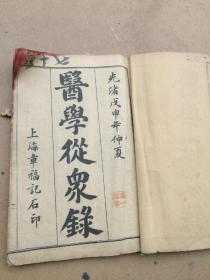 光緒戊申年仲夏
醫學從眾錄
上海章福記石印